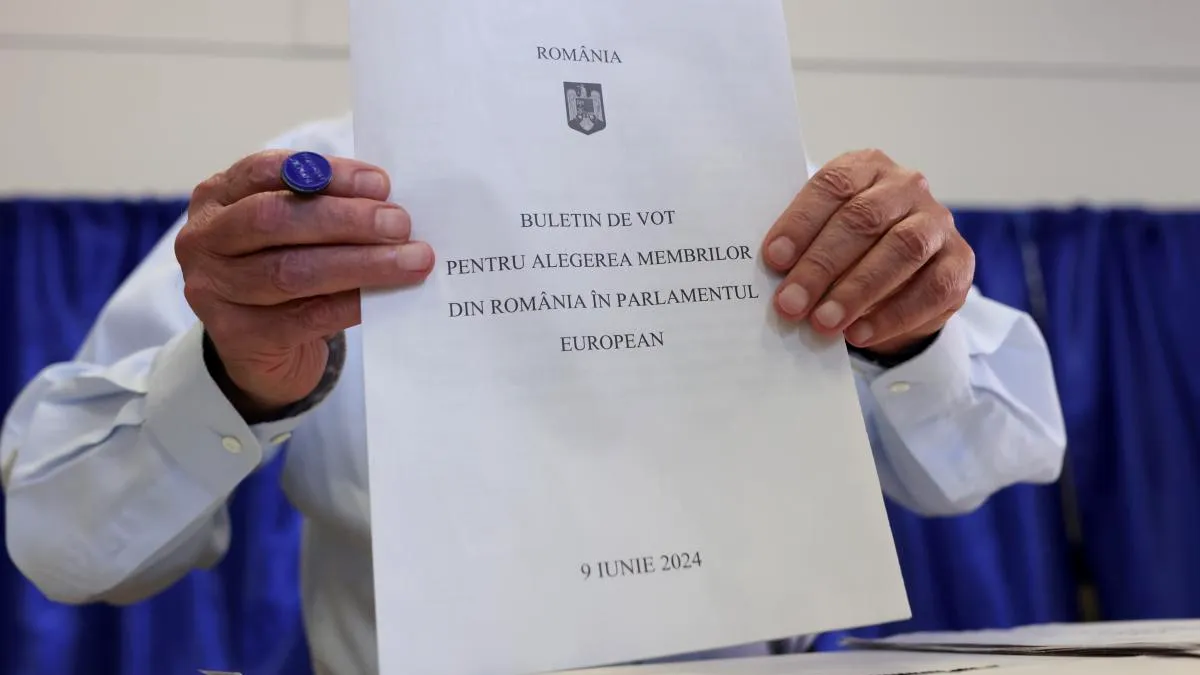 ROMÂNIA
BULETIN DE VOT
PENTRU ALEGEREA MEMBRILOR
DIN ROMÂNIA ÎN PARLAMENTUL
EUROPEAN
9 IUNIE 2024